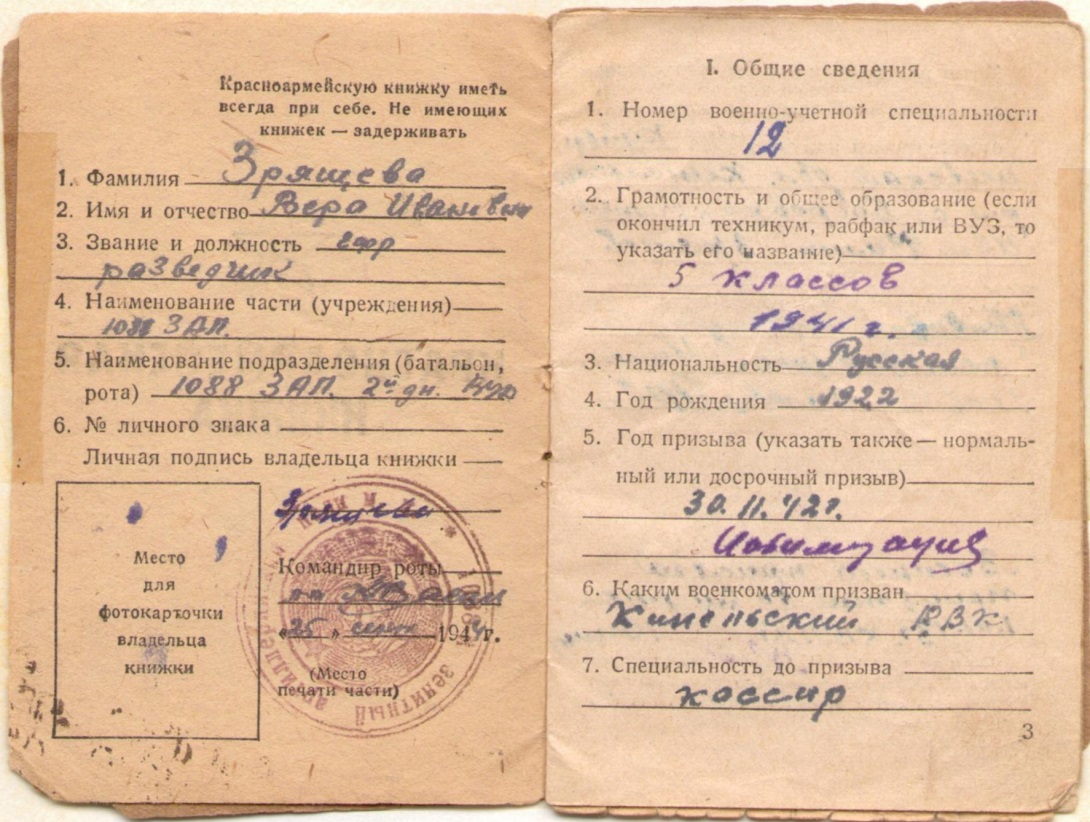 Красноармейскую книжку иметь
всегда при себе. Не имеющих
книжек — задерживать
1. Фамилия Зрящева
2. Имя и отчество Вера Ивановна
3. Звание и должность ефр
разведчик
4. Наименование части (учреждения)
1088 ЗАП.
5. Наименование подразделения (батальон,
рота) 1088 ЗАП. 2й дн.
6. № личного знака
Личная подпись владельца книжки
Зрящева
Место
для
фотокарточки
владельца
книжки
Командир роты
«25» 194 г.
(Место
печати части)
зенитный
I. Общие сведения
1. Номер военно-учетной специальности
12
2. Грамотность и общее образование (если
окончил техникум, рабфак или ВУЗ, то
указать его название)
5 классов
1941 г.
3. Национальность Русская
4. Год рождения 1922
5. Год призыва (указать также — нормаль-
ный или досрочный призыв)
30.11.42г.
6. Каким военкоматом призван
Кинельский РВК
7. Специальность до призыва
кассир
3